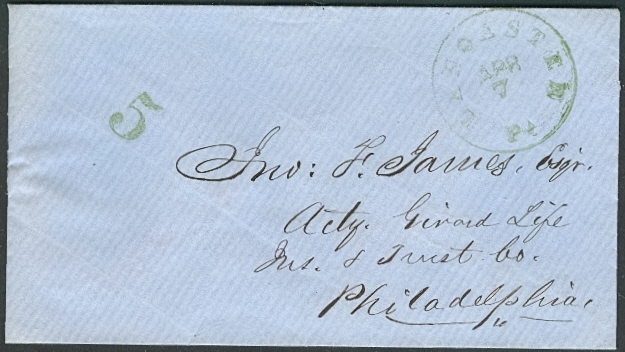 LANCASTER Pa
APR
7
5
Jno: F. James, Esqr.
Acty. Girard Life
Ins. & Trust Co.
Philadelphia,